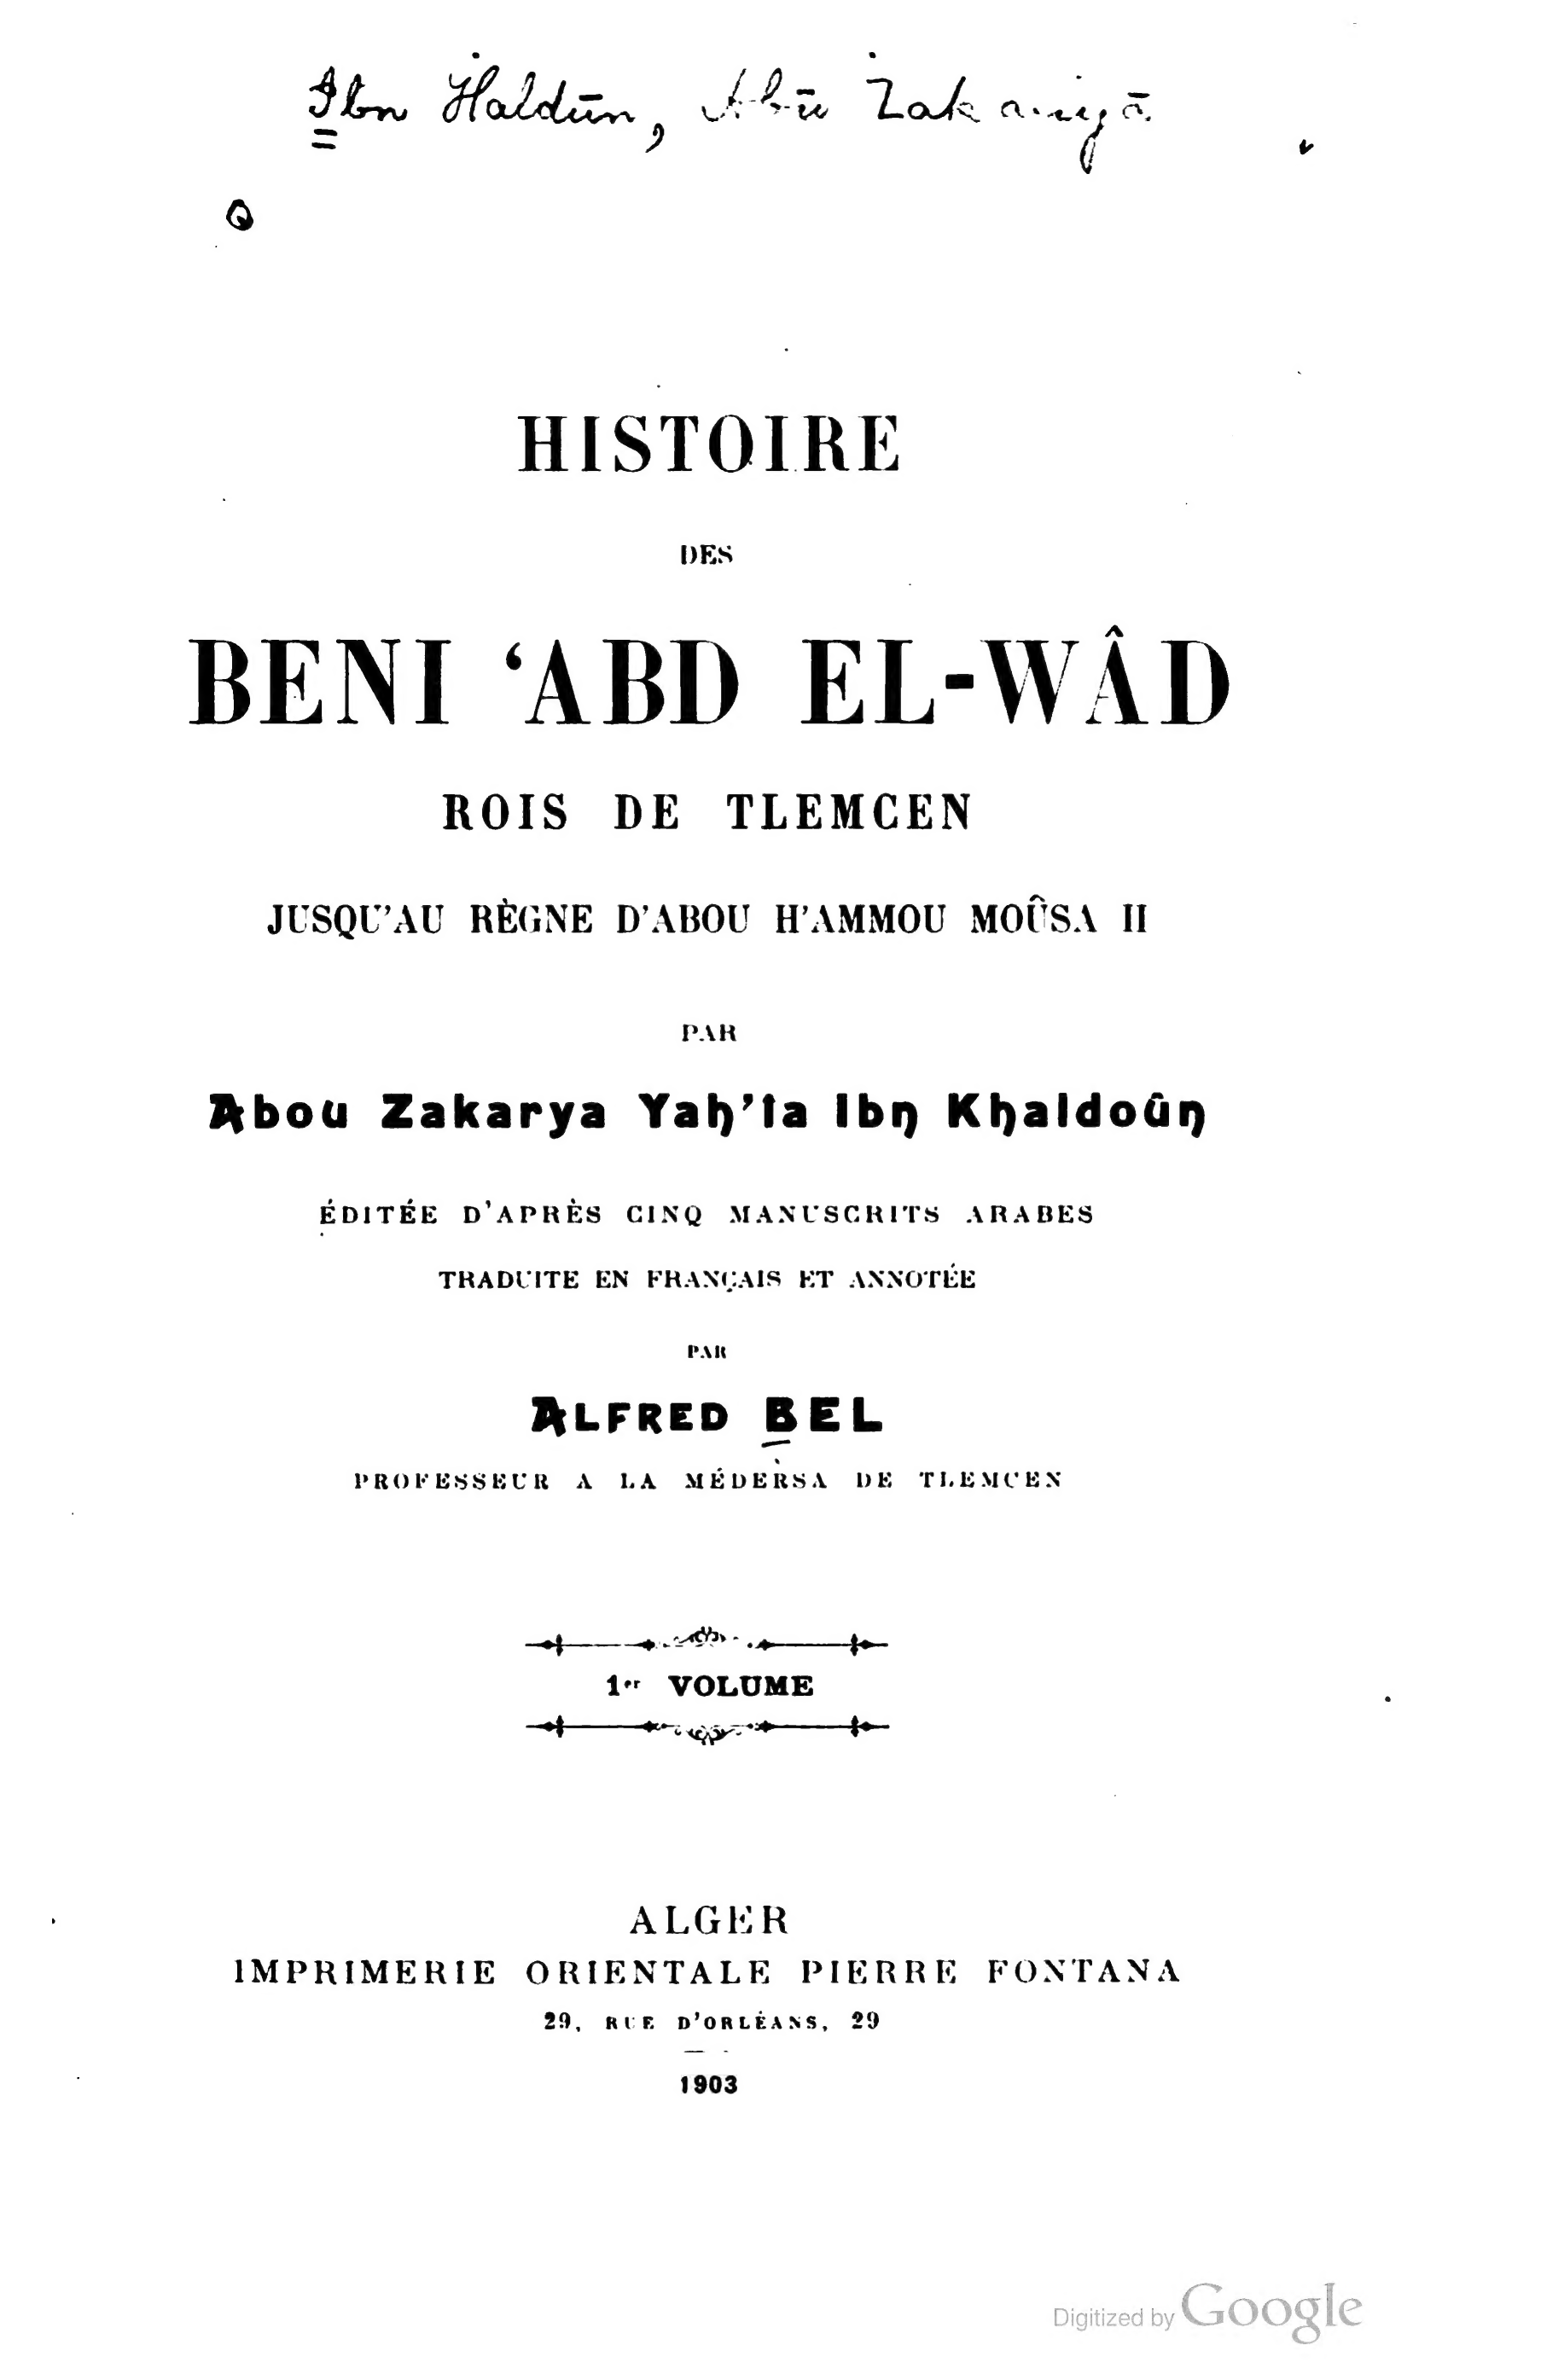 Ibn Ḣaldūn, Abū Zakarīyā
HISTOIRE
DES
BENI ‘ABD EL-WÂD
ROIS DE TLEMCEN
JUSQU’AU RÈGNE D’ABOU H’AMMOU MOÛSA II
PAR
Abou Zakarya Yah’ia Ibn Khaldoûn
ÉDITÉE D’APRÈS CINQ MANUSCRITS ARABES
TRADUITE EN FRANÇAIS ET ANNOTÉE
PAR
ALFRED BEL
PROFESSEUR A LA MÉDERSA DE TLEMCEN
1er VOLUME
ALGER
IMPRIMERIE ORIENTALE PIERRE FONTANA
29, RUE D’ORLÉANS, 29
1903
Digitized by Google